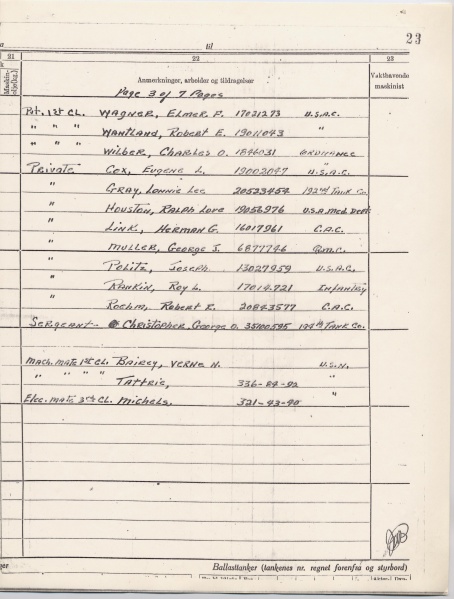 23
til
21 22 23
Maskin-
Anmerkninger, arbeider og tildragelser
Vakthavende
maskinist
Page 3 of 7 Pages
Pvt. 1st CL. WAGNER, ELMER F. 17021273 U.S.A.C.
" " " WANTLAND, ROBERT E. 19011043 "
" " " WILBER, CHARLES O. 1846031 ORDNANCE
PRIVATE COX, EUGENE L. 19002047 U.S.A.C.
" GRAY, LONNIE LEE 20523454 192nd TANK Co
" HOUSTON, RALPH LOVE 19056976 U.S.A Med. Dept
" LINK, HERMAN G. 16017961 C.A.C.
" MULLER, GEORGE J. 6877746 Q.M.C.
" POLITZ, JOSEPH 13027959 U.S.A.C.
" RANKIN, ROY L. 17014721 INFANTRY
" ROEHM, ROBERT R. 20843577 C.A.C.
SERGEANT CHRISTOPHER, GEORGE O. 35100595 TANK Co.
MACH. MATE 1st CL. VERNE H. U.S.N.
" " " " "
336-84-92
ELEC. MATE 3rd CL. MICHELS. 321-43-90 "
Ballasttanker (tankenes nr. regnet forenfra og styrbord)